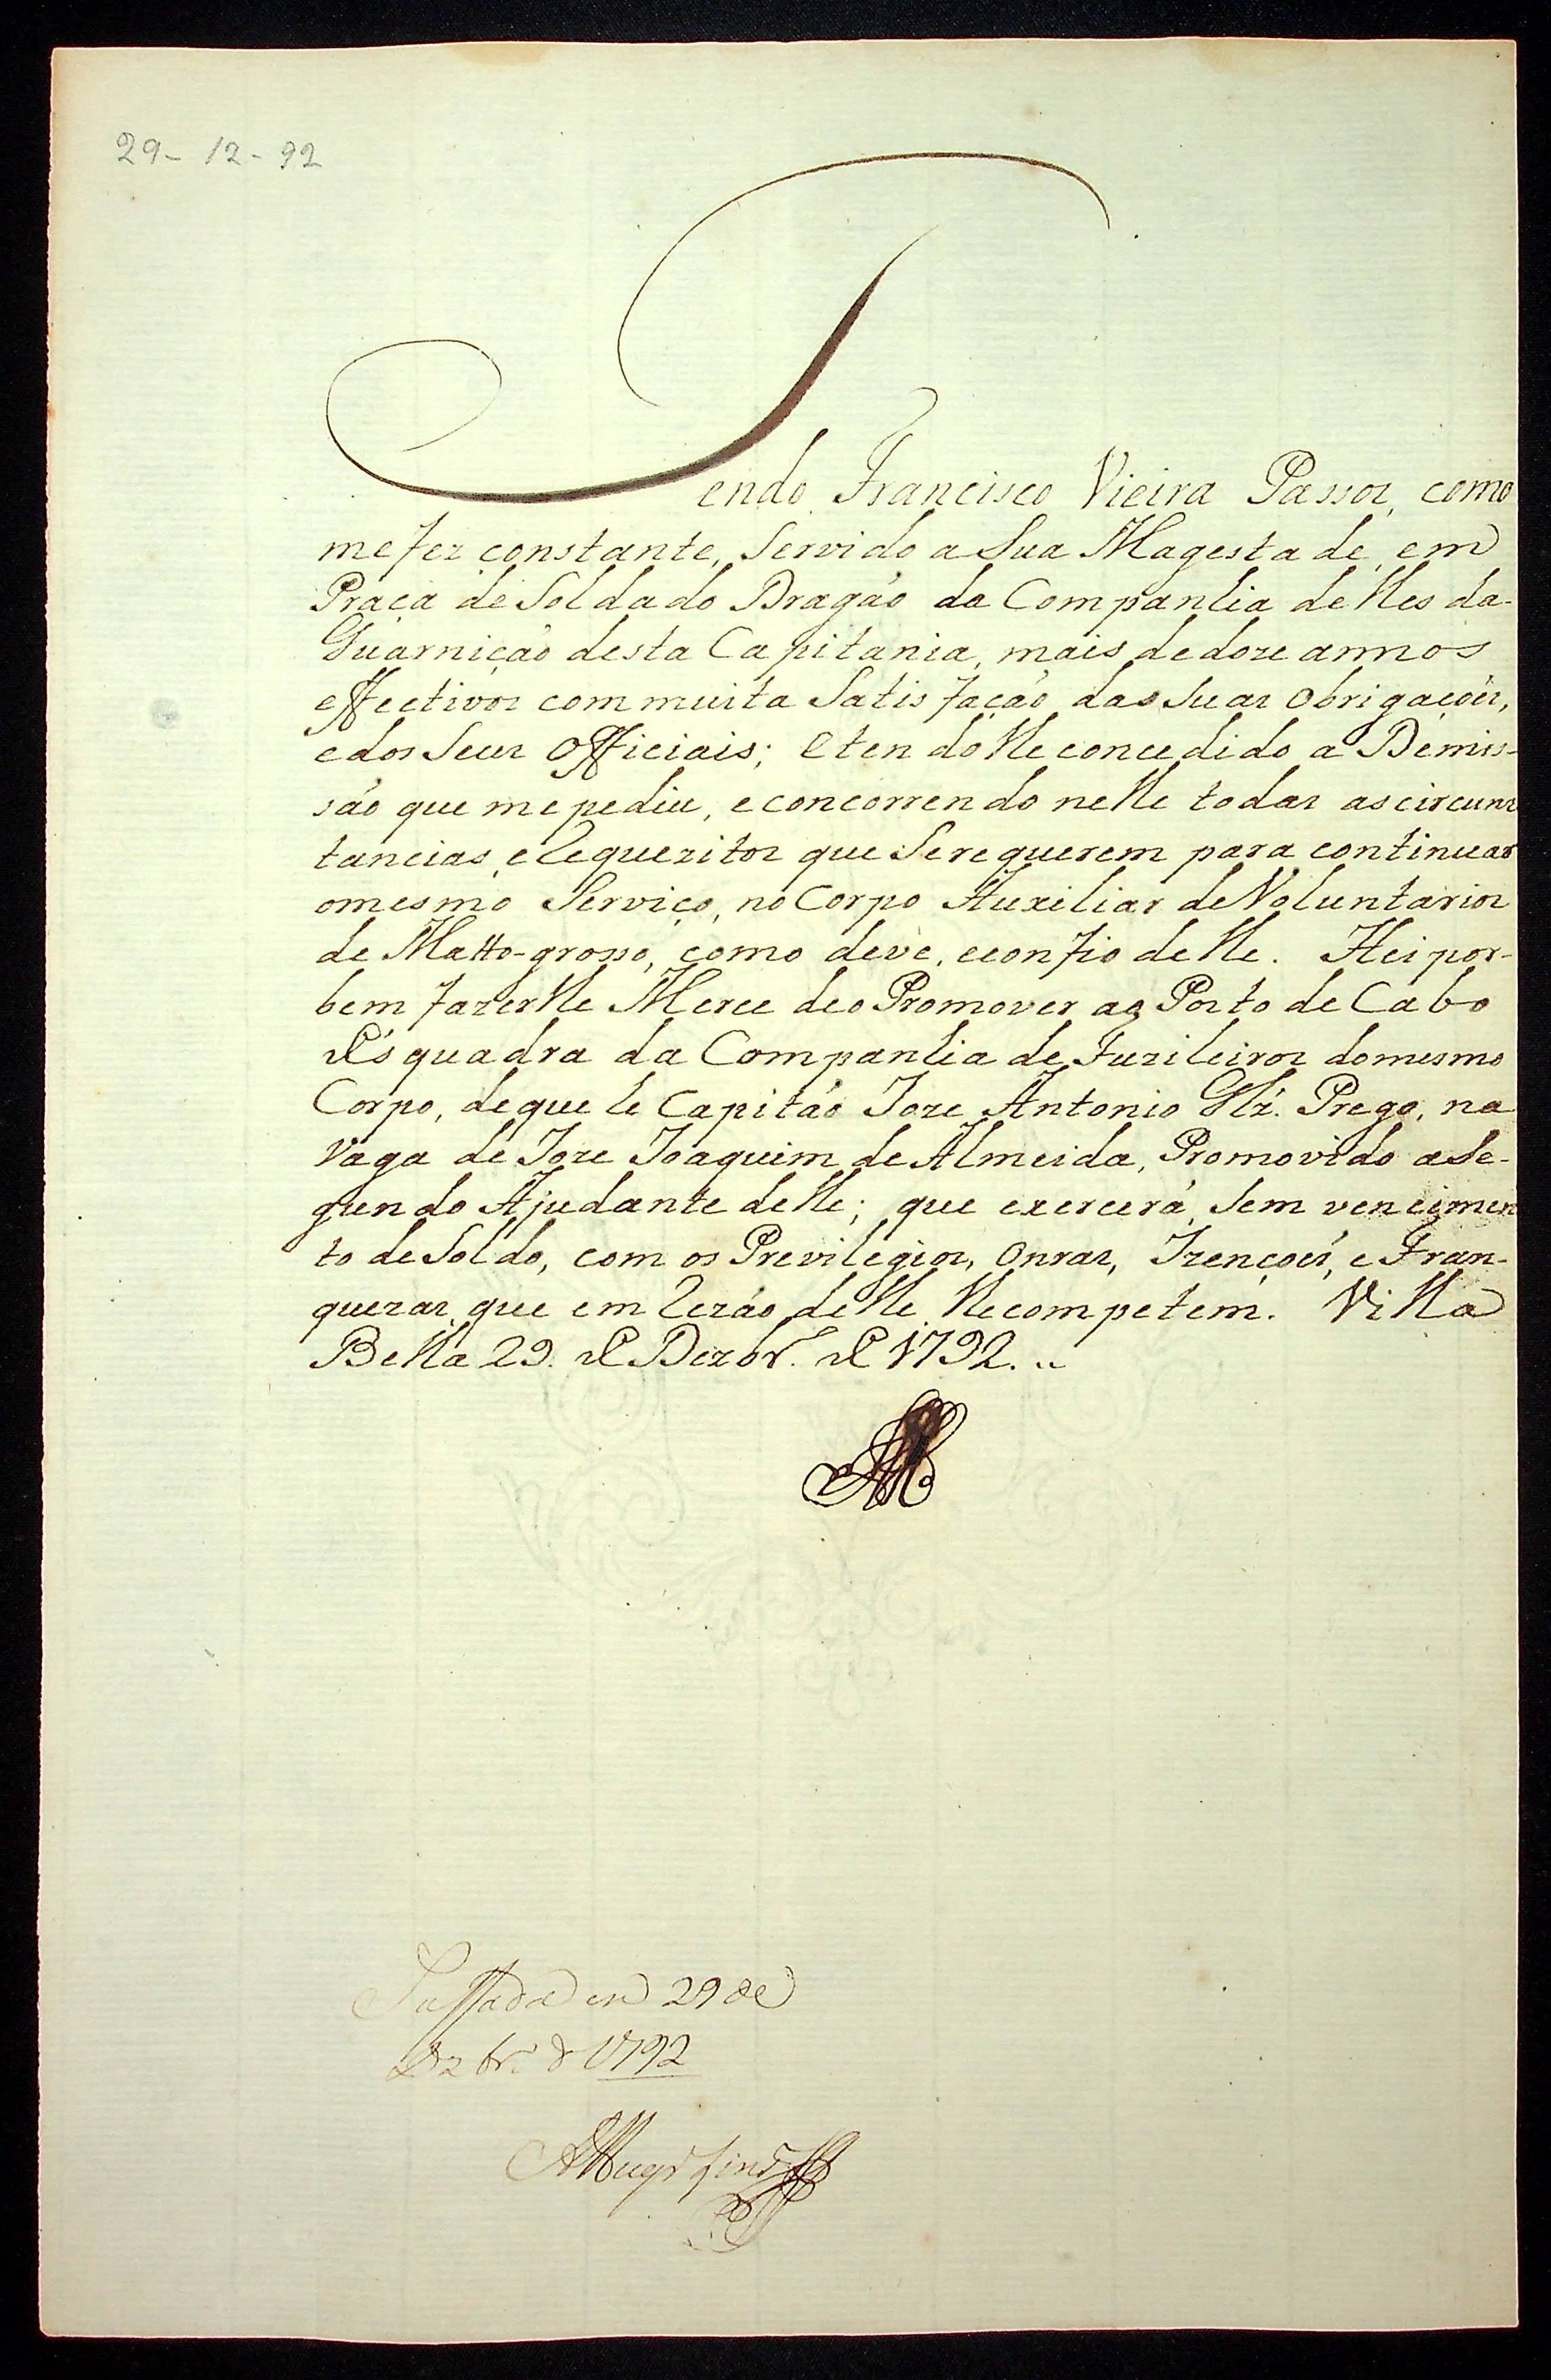 29-12-92
Tendo Francisco Vieira Passos, como
mefez constante, Servido a Sua Magestade, em
Praça de Soldado Dragão da Companhia delles da-
Guarnição desta Capitania, mais dedoze annos
effectivos commuita Satisfação das Suas Obrigaçoẽs,
edos Seus Officiais; Etendolhe concedido a Demis-
são que mepediu, econcorrendo nelle todas ascircuns
tancias, eRequezitos que Serequerem para continuar
omesmo Serviço, no Corpo Auxiliar deVoluntarios
de Matto-grosso, como deve, econfio delle. Hei por-
bem fazerlhe Merce deo Promover ao Posto de Cabo
de Esquadra da Companhia de Fuzileiros domesmo
Corpo, deque he Capitão Joze Antonio Glz. Prego, na
Vaga de Joze Joaquim de Almeida, Promovido aSe-
gundo Ajudante delle; que exercerá, Sem vencimen
to deSoldo, com os Previlegios, Onras, Izençoẽs, e Fran-
quezas, que em Rezão delle lhecompetem. Villa
Bella 29. de Dezbr.º de 1792.
Passada em 29 de
Dzbr.º d 1792